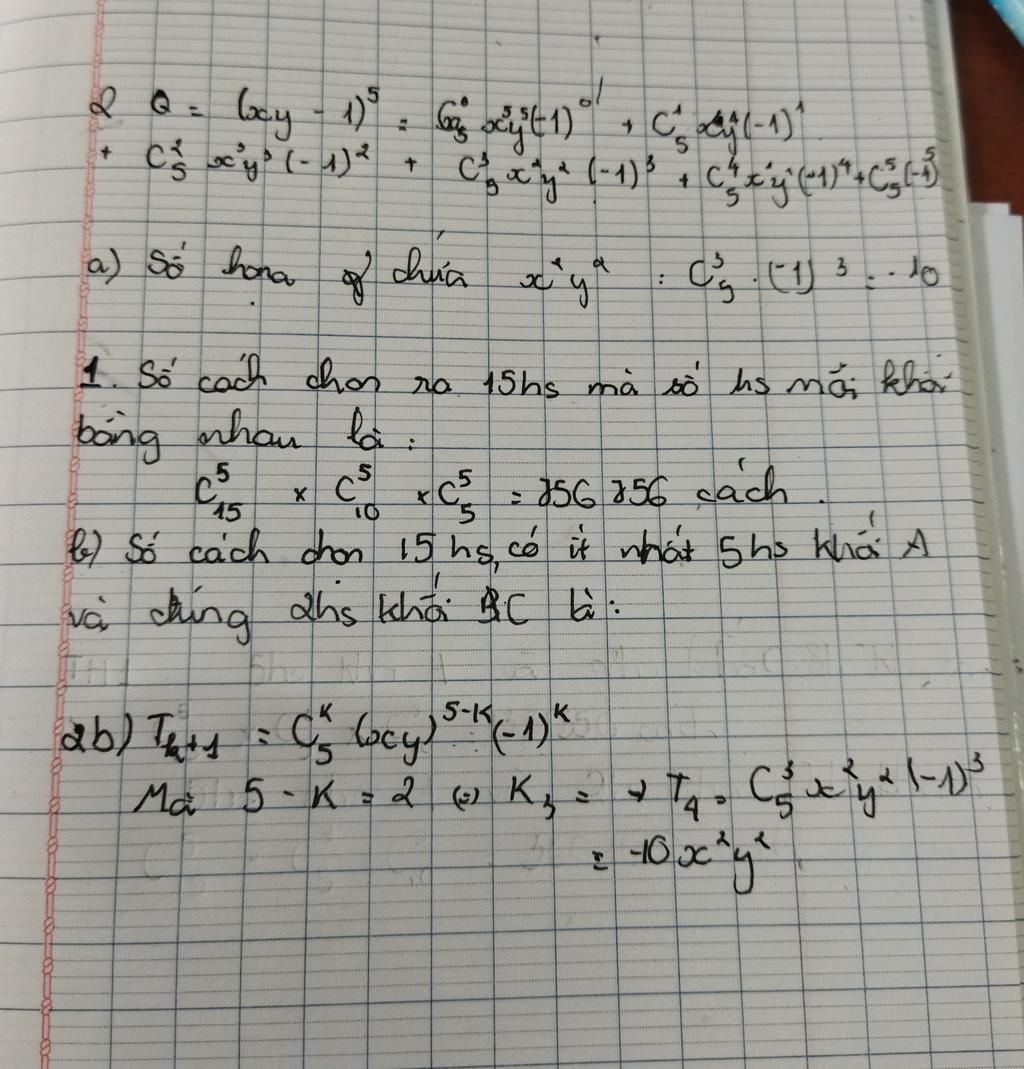 2 Q = (xy - 1)⁵ = C⁰₅ x⁵y⁵(-1)⁰ + C¹₅ x⁴y⁴(-1)¹
+ C²₅ x³y³ (-1)² + C³₅ x²y² (-1)³ + C⁴₅ x¹y¹(-1)⁴ + C⁵₅(-1)⁵
a) Số chứa x²y² : C³₅ . (-1)³ = -10
1. Số cách chọn ra 15hs mà số hs mỗi khối
bằng nhau là :
C⁵₁₅ × C⁵₁₀ × C⁵₅ = 756 756 cách .
b) Số cách chọn 15 hs, có ít nhất 5hs khối A
và đúng 2hs khối C là :
2b) Tₖ₊₁ = Cᴷ₅ (xy)⁵⁻ᴷ (-1)ᴷ
Mà 5 - K = 2 (=) K₃ = → T₄ = C³₅ x²y² (-1)³
= -10x²y²